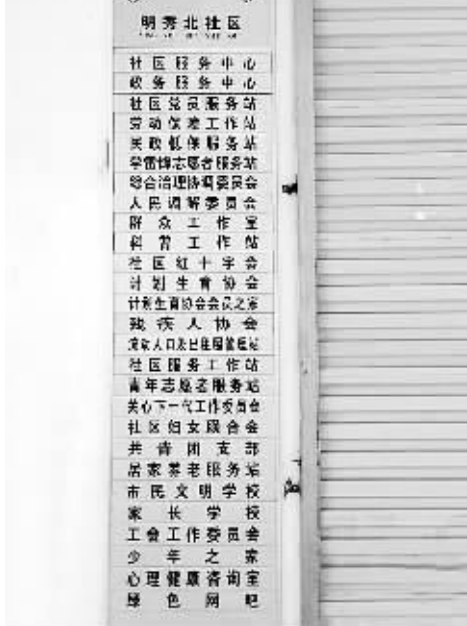 明秀北社区
社区服务中心
政务服务中心
社区党员服务站
劳动保障工作站
民政低保服务站
学雷锋志愿者服务站
综合治理协调委员会
人民调解委员会
群众工作室
科普工作站
社区红十字会
计划生育协会
计划生育协会会员之家
残疾人协会
流动人口及出租屋管理站
社区服务工作站
青年志愿者服务站
关心下一代工作委员会
社区妇女联合会
共青团支部
居家养老服务站
市民文明学校
家长学校
工会工作委员会
少年之家
心理健康咨询室
绿色网吧